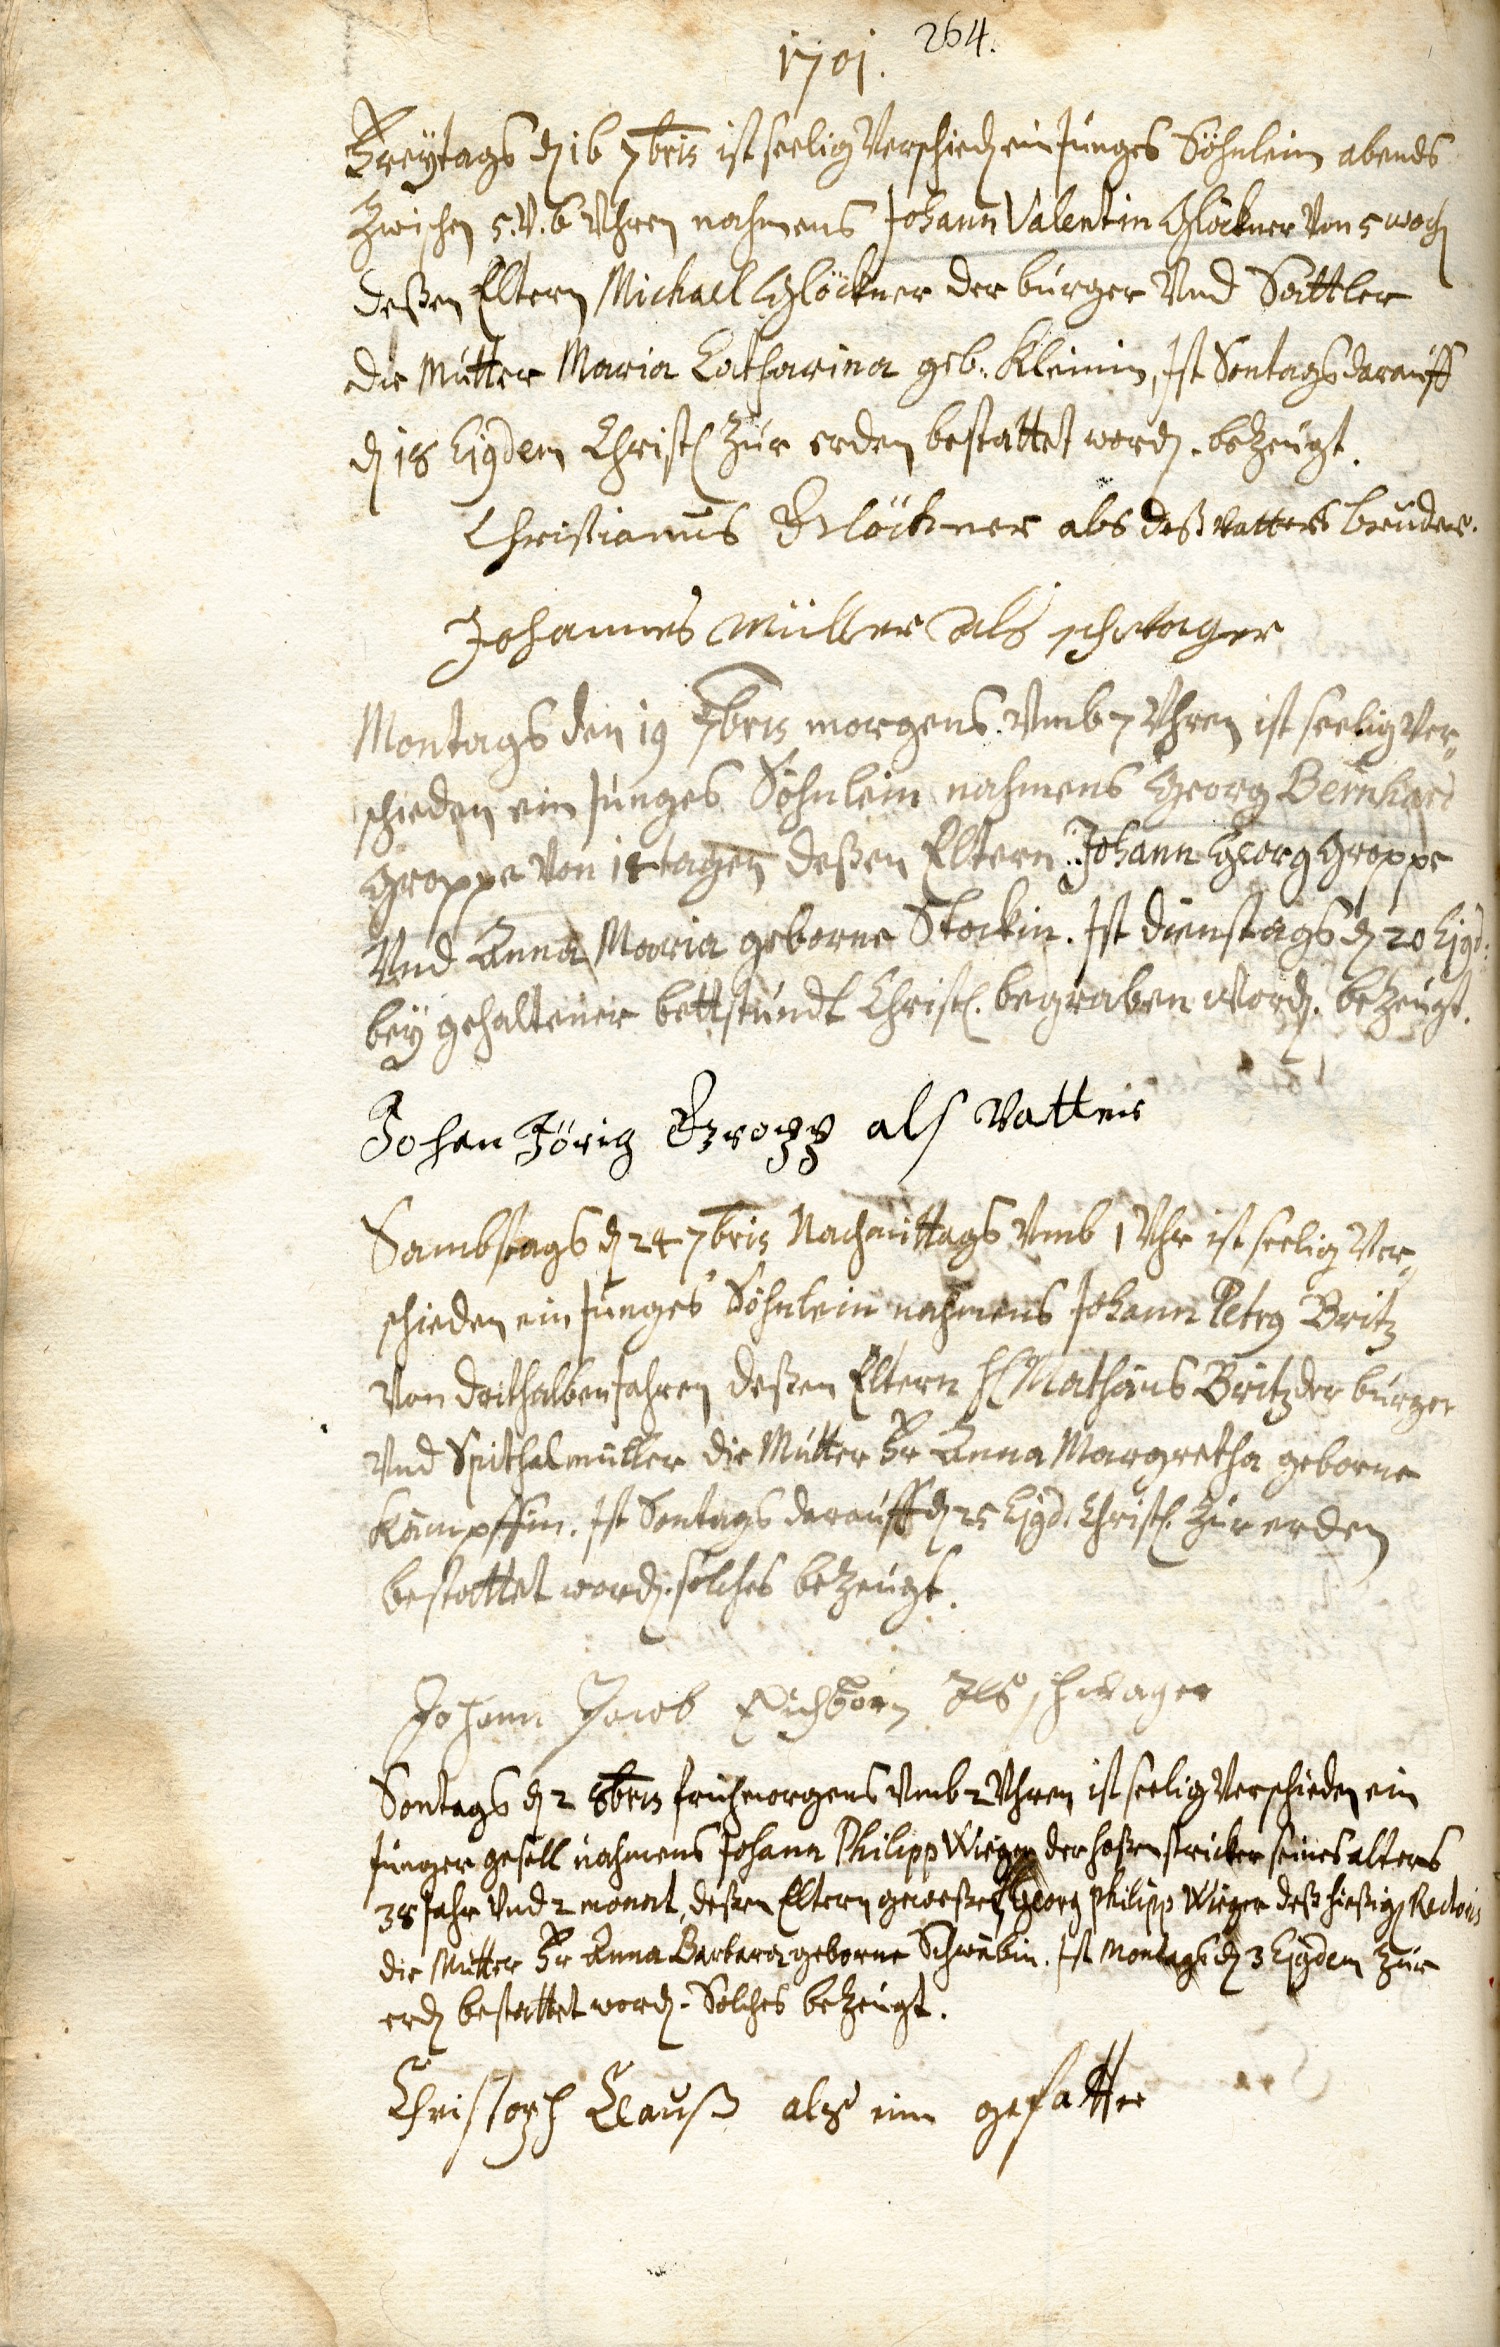 1701. 264.
Freytags d 16 7bris ist seelig Verschied ein Junges Söhnlein abends
Zwischen 5. V. 6 Vhren nahmens Johann Valentin Glöckner Von 5 woch
deßen Eltern Michael Glöckner der burger Vnd Sattler
die Mutter Maria Catharina geb. Kleinin, Ist Sontags darauff
d 18 Ejqdem Christl Zur erden bestattet word. beZeugt.
Christianus Glöckner als deß Vatters bruder.
Johannes Müller als schwager
Montags den 19 7bris morgens Vmb 7 Vhren ist seelig Ver„
schieden ein Junges Söhnlein nahmens Georg Bernhard
Groppe Von 18 tagen deßen Eltern Johann Georg Groppe
Vnd Anna Maria geborne Stockin. Ist dienstags d 20 Ejqd.
bey gehaltener bettstundt Christl. begraben word. beZeugt.
Johan Jörig Gropp als Vatter
Sambstags d 24 7bris Nachmittags Vmb 1 Vhr ist seelig Ver„
schieden ein Junges Söhnlein nahmens Johann Petrg Britz
Von drithalben Jahren deßen Eltern H Mathäus Britz der burger
Vnd Spithalmüller die Mutter Fr Anna Margretha geborne
Kämpffin. Ist Sontags darauff d 25 Ejqd. Christl. Zur erden
bestattet word. solches beZeugt.
Johann Jacob Eichhorn Als schwager
Sontags d 2 8bris fruhmorgens Vmb 2 Vhren ist seelig Verschieden ein
Junger gesell nahmens Johann Philipp Wieger der hoßenstricker seines alters
38 Jahr Vnd 2 monat, deßen Eltern geweßer Georg philipp Wieger deß hießig Rectoris
die Mutter Fr Anna Barbara geborne Schwäbin. Ist Montags d 3 Ejqdem Zur
erd bestattet word. Solches beZeugt.
Christoph Clauß als ein gefatter